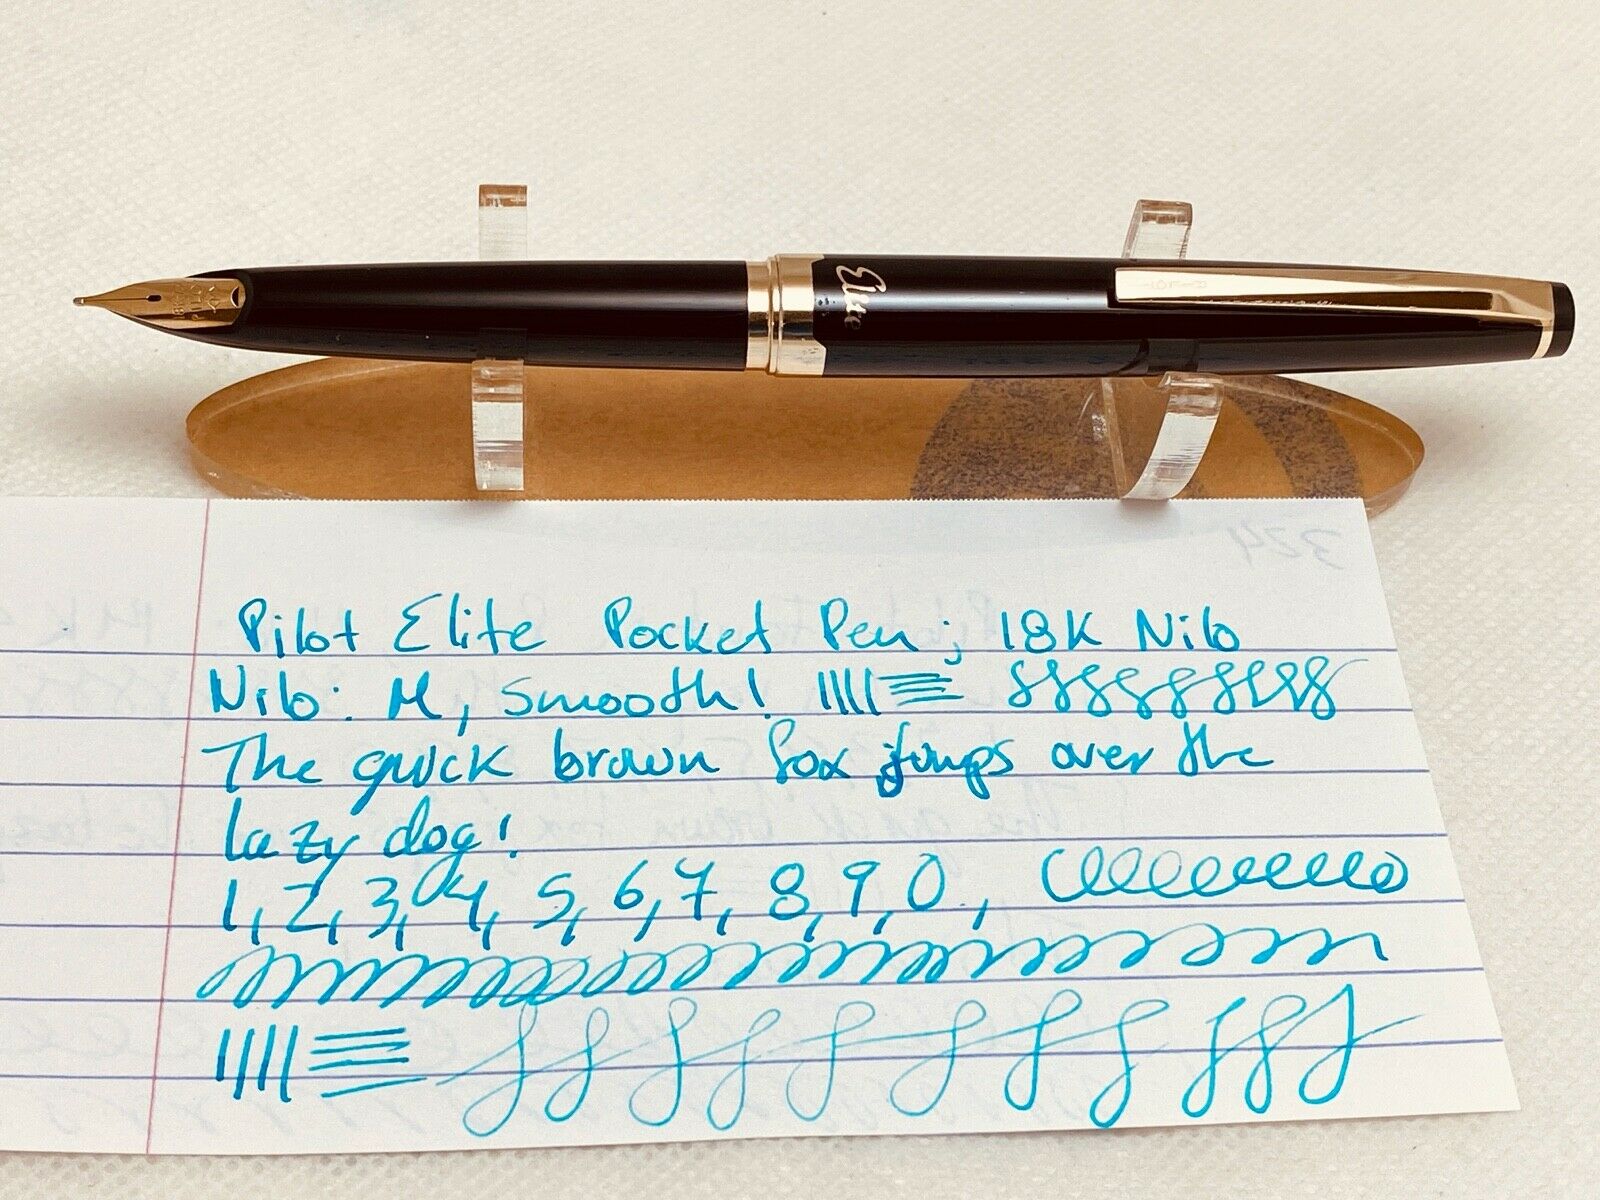 Elite
PILOT
324
Pilot Elite Pocket Pen; 18K Nib
Nib: M, Smooth!
The quick brown fox jumps over the
lazy dog!
1, 2, 3, 4, 5, 6, 7, 8, 9, 0,